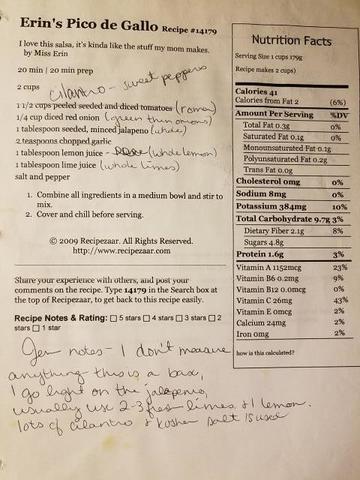 Erin's Pico de Gallo Recipe #14179
I love this salsa, it's kinda like the stuff my mom makes.
by Miss Erin
20 min | 20 min prep
2 cups
cilantro - sweet peppers
1 1/2 cups peeled seeded and diced tomatoes (roma)
1/4 cup diced red onion (green thin onions)
1 tablespoon seeded, minced jalapeno (whole)
2 teaspoons chopped garlic
1 tablespoon lemon juice - (whole lemon)
1 tablespoon lime juice (whole limes)
salt and pepper
1. Combine all ingredients in a medium bowl and stir to
mix.
2. Cover and chill before serving.
© 2009 Recipezaar. All Rights Reserved.
http://www.recipezaar.com
Share your experience with others, and post your
comments on the recipe. Type 14179 in the Search box at
the top of Recipezaar, to get back to this recipe easily.
Recipe Notes & Rating: 5 stars 4 stars 3 stars 2
stars 1 star
Jen notes - I don't measure
anything this is a base,
I go light on the jalapenos,
usually use 2-3 fresh limes & 1 lemon.
lots of cilantro & kosher salt is used
Nutrition Facts
Serving Size 1 cups 179g
Recipe makes 2 cups)
Calories 41
Calories from Fat 2 (6%)
Amount Per Serving %DV
Total Fat 0.3g 0%
Saturated Fat 0.1g 0%
Monounsaturated Fat 0.1g
Polyunsaturated Fat 0.2g
Trans Fat 0.0g
Cholesterol 0mg 0%
Sodium 8mg 0%
Potassium 384mg 10%
Total Carbohydrate 9.7g 3%
Dietary Fiber 2.1g 8%
Sugars 4.8g
Protein 1.6g 3%
Vitamin A 1152mcg 23%
Vitamin B6 0.2mg 9%
Vitamin B12 0.0mcg 0%
Vitamin C 26mg 43%
Vitamin E 0mcg 2%
Calcium 24mg 2%
Iron 0mg 2%
how is this calculated?